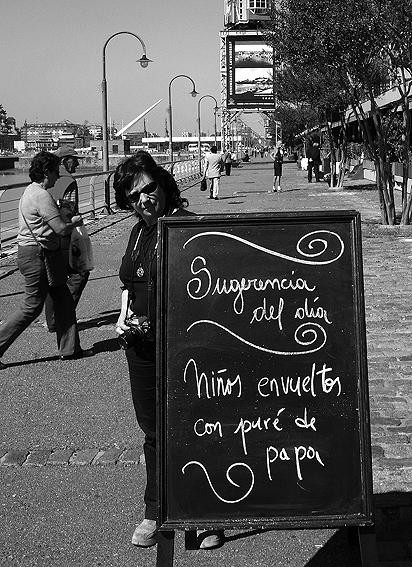 Sugerencia
del día
Niños envueltos
con puré de
papa